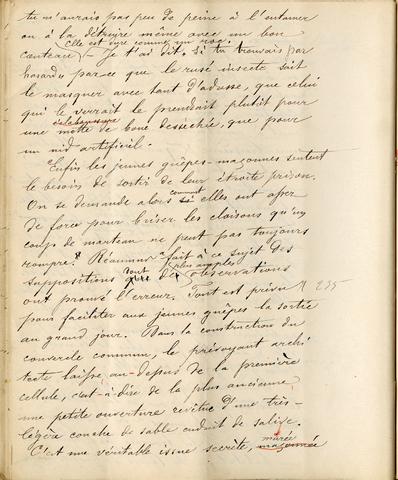 tu n'aurais pas peu de peine à l'entamer
ou à la détruire même avec un bon
couteau. Elle est dure comme un roc.
— Je t'ai dit, si tu trouvais par
hasard, parce que le rusé insecte sait
le masquer avec tant d'adresse, que celui
qui le verrait le prendrait plutôt pour
une éclaboussure motte de boue desséchée, que pour
un nid artificiel.
"Enfin les jeunes guêpes-maçonnes sentent
le besoin de sortir de leur étroite prison.
On se demande alors si comment elles ont assez
de force pour briser les cloisons qu'un
coup de marteau ne peut pas toujours
rompre. Réaumur a fait à ce sujet des
suppositions dont de plus amples observations
ont prouvé l'erreur. Tout est prévu 235
pour faciliter aux jeunes guêpes la sortie
au grand jour. Dans la construction du
couvercle commun, le prévoyant archi
tecte laisse au-dessus de la première
cellule, c'est-à-dire de la plus ancienne,
une petite ouverture revêtue d'une très-
légère couche de sable enduit de salive.
C'est une véritable issue secrète, murée maçonnée